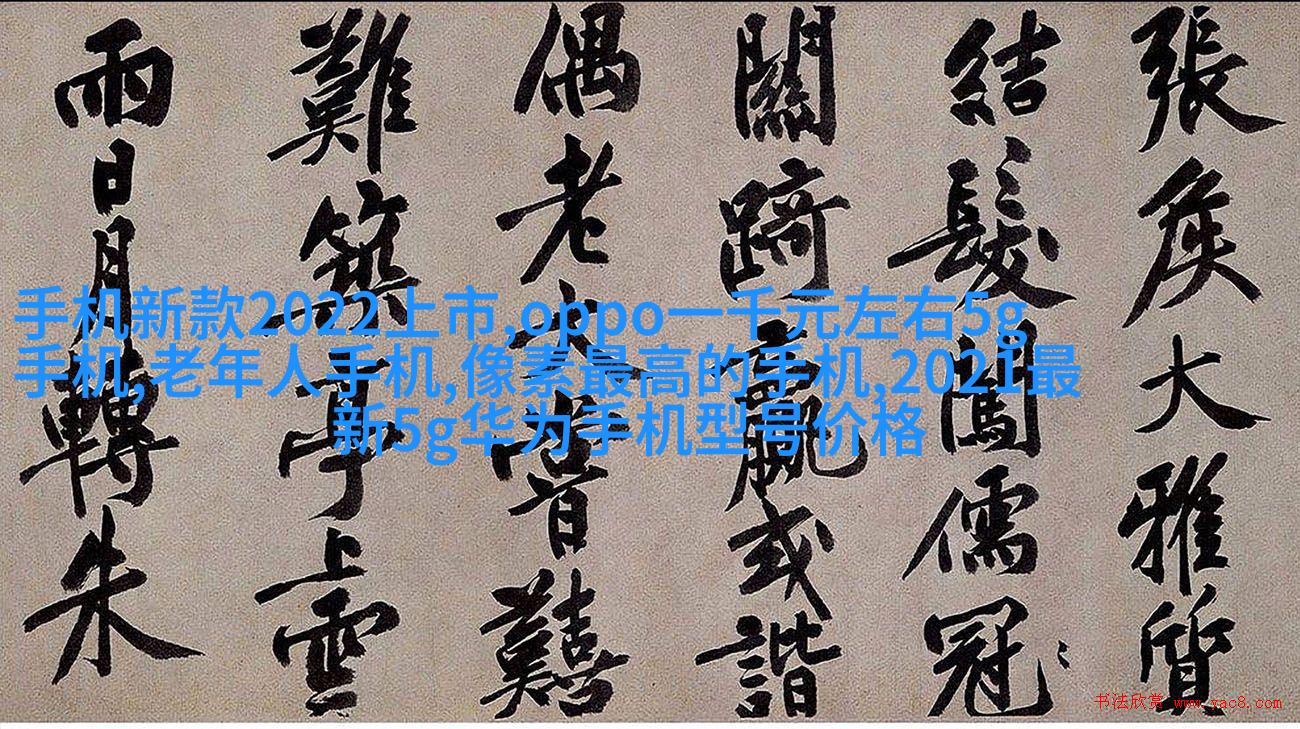 手机新款2022上市,oppo一千元左右5g
手机,老年人手机,像素最高的手机,2021最
新5g华为手机型号价格
張矦大雅質
結髮闖儒冠
關踦羸或諧
偶老大嘗囏
難築亭上雲
雨日月轉朱
书法欣赏 www.yac8.com